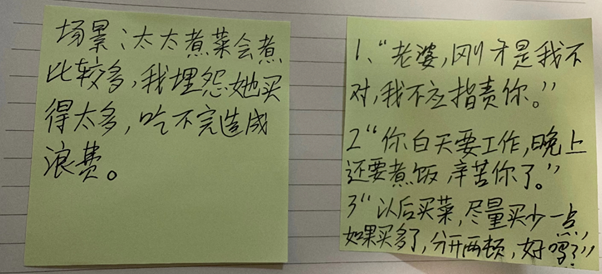 场景:太太煮菜会煮
比较多,我埋怨她买
得太多,吃不完造成
浪费。
1、“老婆,刚才是我不
对,我不应指责你。”
2“你白天要工作,晚上
还要煮饭,辛苦你了。”
3“以后买菜,尽量买少一点,
如果买多了,分开两顿,好吗?”